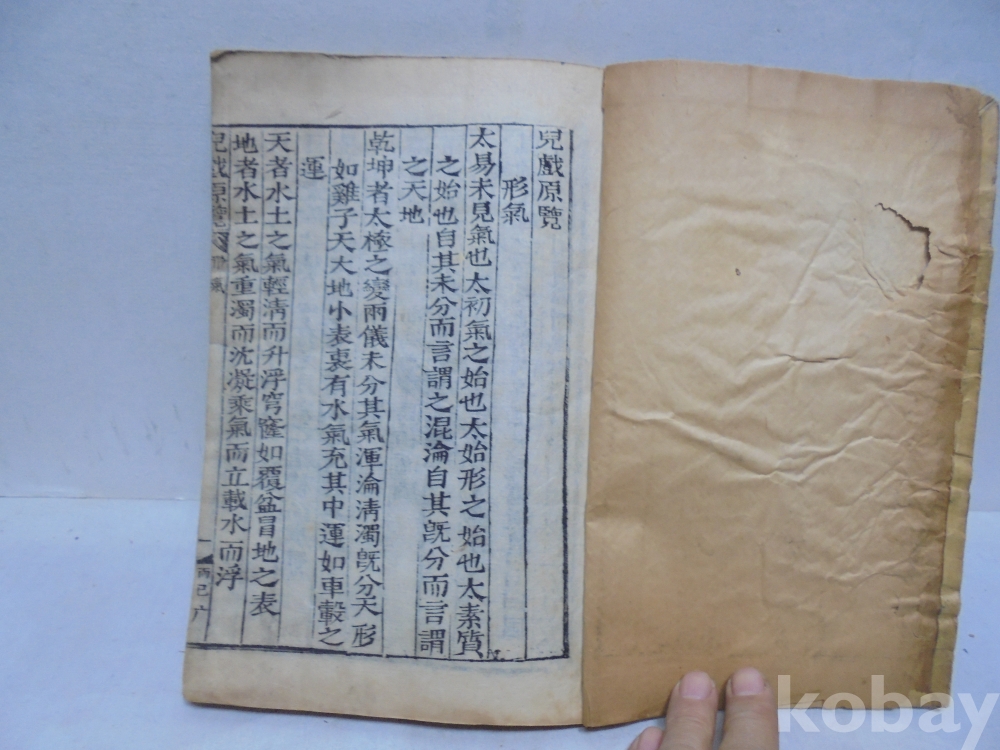 兒戲原覽
形氣
太易未見氣也太初氣之始也太始形之始也太素質
之始也自其未分而言謂之混淪自其旣分而言謂
之天地
乾坤者太極之變兩儀未分其氣渾淪淸濁旣分天形
如雞子天大地小表裏有水氣充其中運如車轂之
運
天者水土之氣輕淸而升浮穹窿如覆盆冒地之表
地者水土之氣重濁而沈凝乘氣而立載水而浮
兒戲原覽
一
kobay